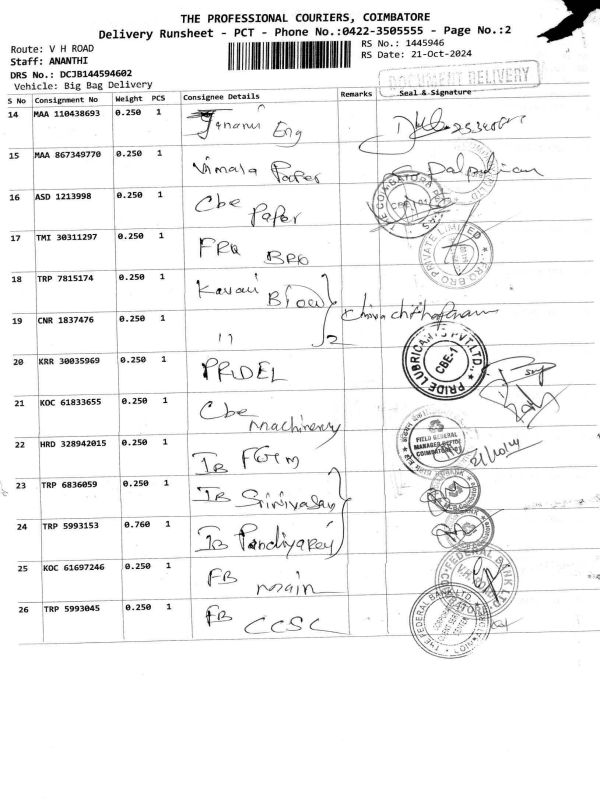 THE PROFESSIONAL COURIERS, COIMBATORE
Delivery Runsheet - PCT - Phone No.:0422-3505555 - Page No.:2
Route: V H ROAD
RS No.: 1445946
Staff: ANANTHI
RS Date: 21-Oct-2024
DRS No.: DCJB144594602
Vehicle: Big Bag Delivery
DOCUMENT DELIVERY
S No Consignment No Weight PCS Consignee Details Remarks Seal & Signature
14 MAA 110438693 0.250 1 Eng
15 MAA 867349770 0.250 1 Vimala Paper
16 ASD 1213998 0.250 1 Cbe Paper
CBE. 01
17 TMI 30311297 0.250 1 FRO BRO
FRO BRO PRIVATE LIMITED
18 TRP 7815174 0.250 1
19 CNR 1837476 0.250 1 11 2
20 KRR 30035969 0.250 1 PRIDEL
PRIDE LUBRICANTS PVT.LTD.,
CBE-1
21 KOC 61833655 0.250 1 Cbe Machinery
22 HRD 328942015 0.250 1 IB
FIELD GENERAL
MANAGER OFFICE
COIMBATORE
21/10/24
23 TRP 6836059 0.250 1 IB Srinivasan
24 TRP 5993153 0.760 1 IB
25 KOC 61697246 0.250 1 FB main
FEDERAL BANK LTD
26 TRP 5993045 0.250 1 FB CCSC
THE FEDERAL BANK LTD